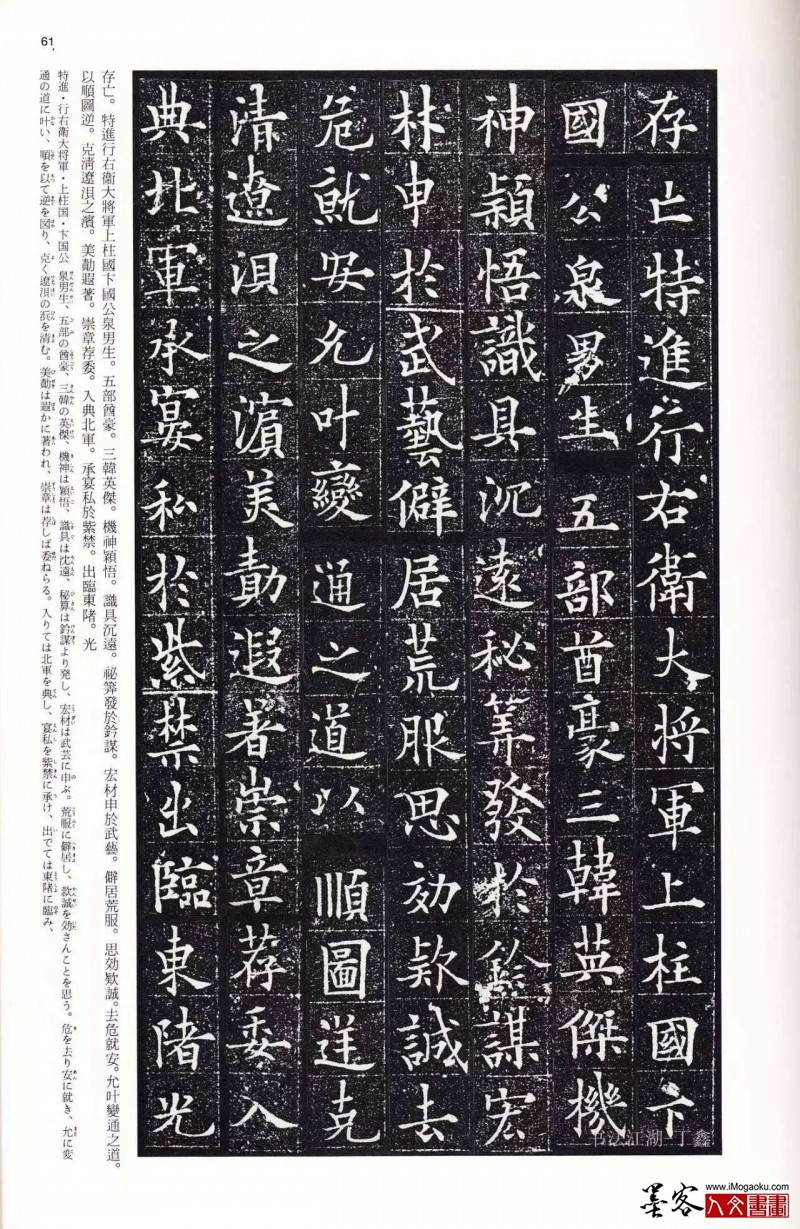 61
存亡特進行右衛大將軍上柱國卞
國公泉男生五部酋豪三韓英傑機
神穎悟識具沉遠秘筭發於鈐謀宏
材申於武藝僻居荒服思効款誠去
危就安允叶變通之道以順圖逆克
清遼浿之濱美勣遐著崇章荐委入
典北軍承宴私於紫禁出臨東陼光
存亡。特進行右衞大將軍上柱國卞國公泉男生。五部酋豪。三韓英傑。機神穎悟。識具沉遠。祕筭發於鈐謀。宏材申於武藝。僻居荒服。思効欵誠。去危就安。允叶變通之道。
以順圖逆。克淸遼浿之濱。美勣遐著。崇章荐委。入典北軍。承宴私於紫禁。出臨東陼。光
特進・行右衛大将軍・上柱国・卞国公 泉男生、五部の酋豪、三韓の英傑、機神は穎悟、識具は沈遠、秘算は鈐謀より発し、宏材は武芸に申ぶ。荒服に僻居し、款誠を効さんことを思う。危を去り安に就き、允に変
通の道に叶い、順を以て逆を図り、克く遼浿の浜を清む。美勣は遐かに著われ、崇章は荐しば委ねらる。入りては北軍を典し、宴私を紫禁に承け、出でては東陼に臨み、
书法江湖 丁鑫
www.iMogaoku.com
墨客
人文書畫